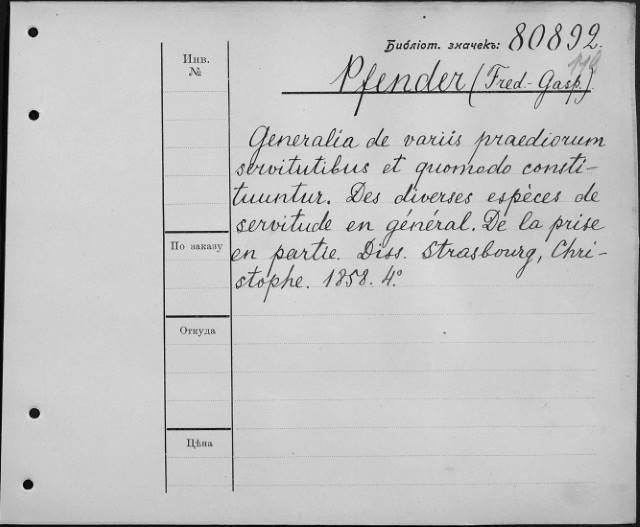 Библіот. значекъ: 80892.
Инв.
№
Pfender (Fred.-Gasp.).
Generalia de variis praediorum
servitutibus et quomodo consti-
tuuntur. Des diverses espèces de
servitude en général. De la prise
en partie. Diss. Strasbourg, Chri-
stophe. 1858. 4°.
По заказу
Откуда
Цѣна